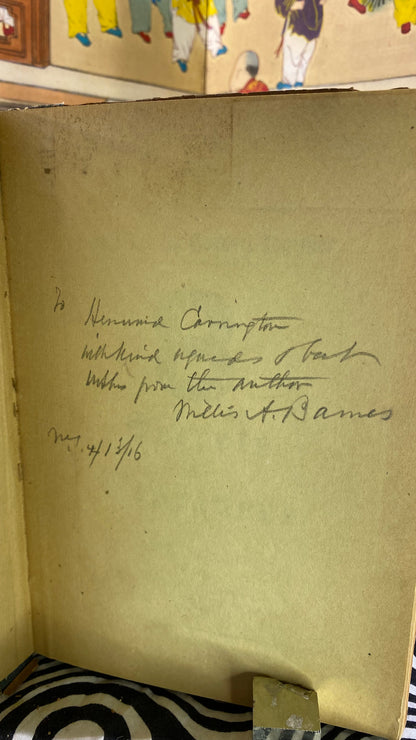 To
Hereward Carrington
with kind regards & best
wishes from the author
Willis A. Barnes
NY. 4/13/16